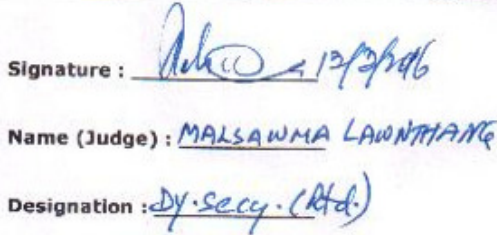 Signature : 13/3/2016
Name (Judge) : MALSAWMA LAWNTHANG
Designation : Dy. Secy. (Rtd.)